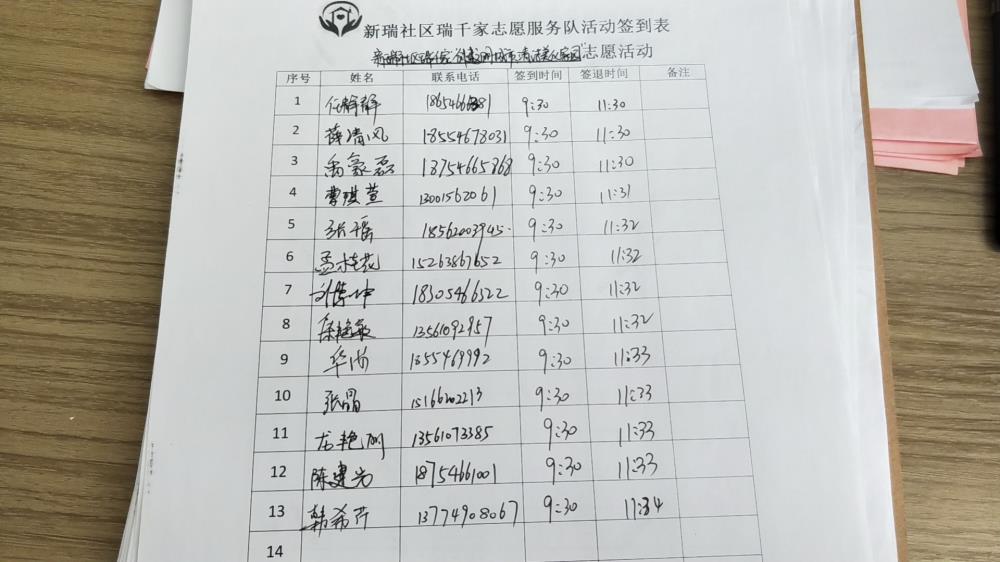 新瑞社区瑞千家志愿服务队活动签到表
志愿活动
序号 姓名 联系电话 签到时间 签退时间 备注
1 任静静 9:30 11:30
2 薛清风 18554678031 9:30 11:30
3 禹豪磊 18754665868 9:30 11:30
4 曹琪萱 13001562061 9:30 11:31
5 张瑶 18562003945 9:30 11:32
6 孟桂花 15263867652 9:30 11:32
7 18305466522 9:30 11:32
8 13561092957 9:30 11:32
9 华 1355469992 9:30 11:33
10 张晶 15166202213 9:30 11:33
11 龙艳刚 13561073385 9:30 11:33
12 陈建光 18754661001 9:30 11:33
13 韩希芹 13774908067 9:30 11:34
14